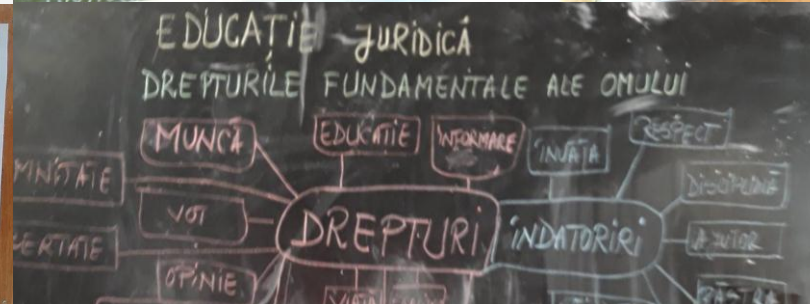 EDUCAȚIE JURIDICĂ
DREPTURILE FUNDAMENTALE ALE OMULUI
MUNCĂ
EDUCAȚIE
INFORMARE
ÎNVAȚĂ
RESPECT
MNITATE
DISCIPLINĂ
VOT
DREPTURI
ÎNDATORIRI
AJUTOR
ERTATE
OPINIE
VIAȚĂ